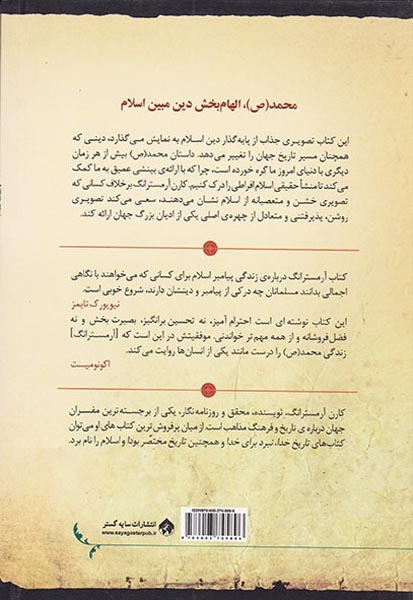 محمد(ص)، الهام‌بخش دین مبین اسلام
این کتاب تصویری جذاب از پایه‌گذار دین اسلام به نمایش می‌گذارد، دینی که
همچنان مسیر تاریخ جهان را تغییر می‌دهد. داستان محمد(ص) بیش از هر زمان
دیگری با دنیای امروز ما گره خورده است، چرا که با ارائه‌ی بینشی عمیق به ما کمک
می‌کند تا منشأ حقیقی اسلام افراطی را درک کنیم. کارن آرمسترانگ برخلاف کسانی که
تصویری خشن و متعصبانه از اسلام نشان می‌دهند، سعی می‌کند تصویری
روشن، پذیرفتنی و متعادل از چهره‌ی اصلی یکی از ادیان بزرگ جهان ارائه کند.
کتاب آرمسترانگ درباره‌ی زندگی پیامبر اسلام برای کسانی که می‌خواهند با نگاهی
اجمالی بدانند مسلمانان چه درکی از پیامبر و دینشان دارند، شروع خوبی است.
نیویورک تایمز
این کتاب نوشته‌ای است احترام آمیز، نه تحسین برانگیز، بصیرت بخش و نه
فضل‌فروشانه و از همه مهم‌تر خواندنی. موفقیتش در این است که [آرمسترانگ]
زندگی محمد(ص) را درست مانند یکی از انسان‌ها روایت می‌کند.
اکونومیست
کارن آرمسترانگ، نویسنده، محقق و روزنامه‌نگار، یکی از برجسته‌ترین مفسران
جهان درباره‌ی تاریخ و فرهنگ مذاهب است. از میان پرفروش ترین کتاب های او می‌توان
کتاب‌های تاریخ خدا، نبرد برای خدا و همچنین تاریخ مختصر بودا و اسلام را نام برد.
انتشارات سایه گستر
www.sayegostarpub.ir